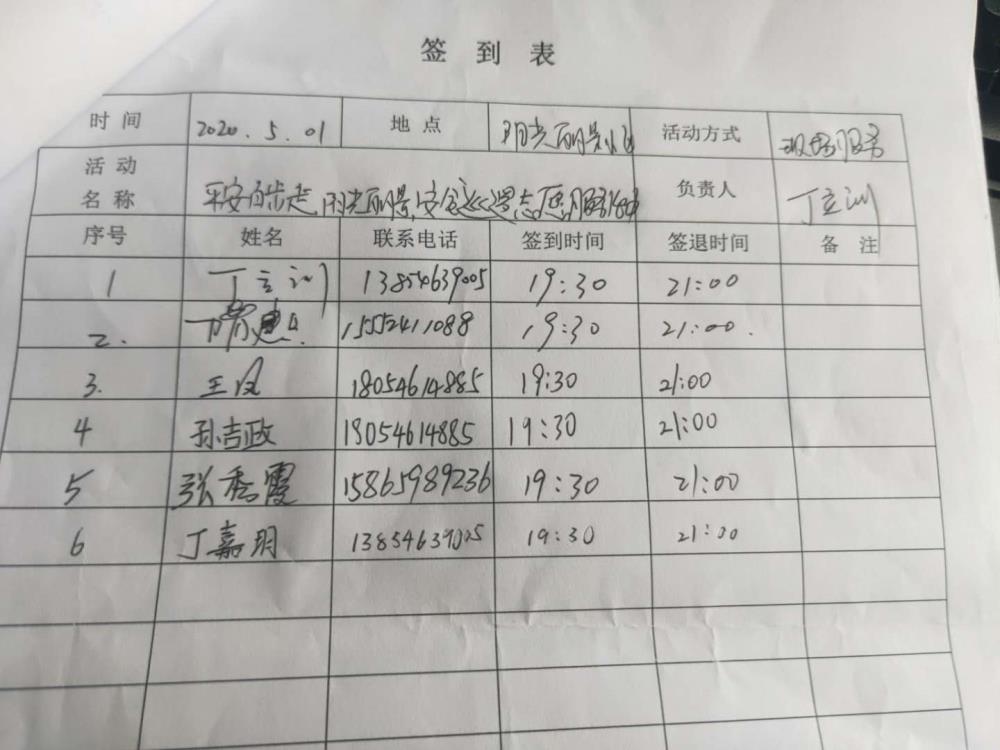 签到表
时间 2020.5.01 地点 阳光丽景小区 活动方式 现场服务
活动名称 平安自步走 阳光丽景,安全巡逻志愿服务活动 负责人 丁立训
序号 姓名 联系电话 签到时间 签退时间 备注
1 丁立训 13854639005 19:30 21:00
2. 15552411088 19:30 21:00.
3. 王凤 18054614885 19:30 21:00
4 孙吉政 18054614885 19:30 21:00
5 张秀霞 15865989236 19:30 21:00
6 丁嘉玥 13854639005 19:30 21:00